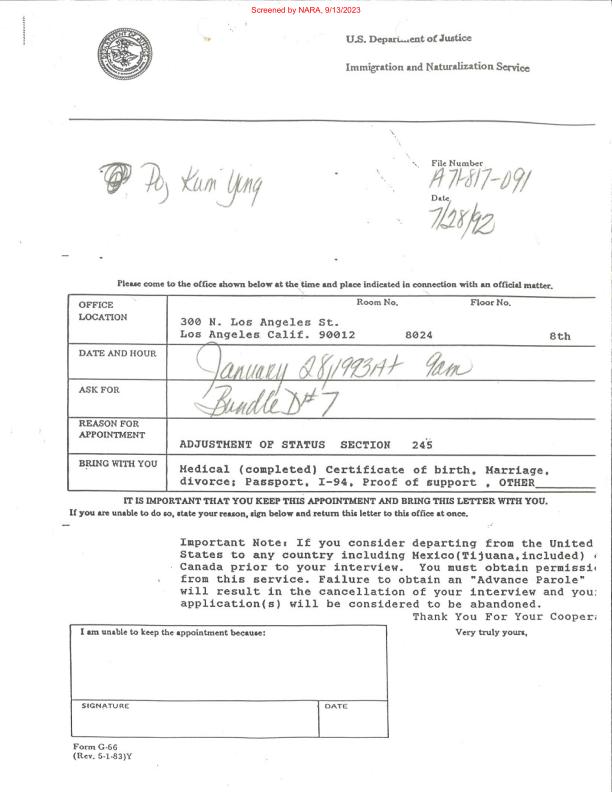 Screened by NARA, 9/13/2023
U.S. Department of Justice
Immigration and Naturalization Service
Kum Ying
File Number
A 71-817-091
Date
7/28/92
Please come to the office shown below at the time and place indicated in connection with an official matter.
OFFICE LOCATION
Room No. Floor No.
300 N. Los Angeles St.
Los Angeles Calif. 90012 8024 8th
DATE AND HOUR
January 28, 1993 At 9am
ASK FOR
Bundle D# 7
REASON FOR APPOINTMENT
ADJUSTMENT OF STATUS SECTION 245
BRING WITH YOU
Medical (completed) Certificate of birth, Marriage,
divorce; Passport, I-94, Proof of support , OTHER
IT IS IMPORTANT THAT YOU KEEP THIS APPOINTMENT AND BRING THIS LETTER WITH YOU.
If you are unable to do so, state your reason, sign below and return this letter to this office at once.
Important Note: If you consider departing from the United
States to any country including Mexico(Tijuana,included)
Canada prior to your interview. You must obtain permissi
from this service. Failure to obtain an "Advance Parole"
will result in the cancellation of your interview and you
application(s) will be considered to be abandoned.
Thank You For Your Coopera
I am unable to keep the appointment because:
Very truly yours,
SIGNATURE
DATE
Form G-66
(Rev. 5-1-83)Y